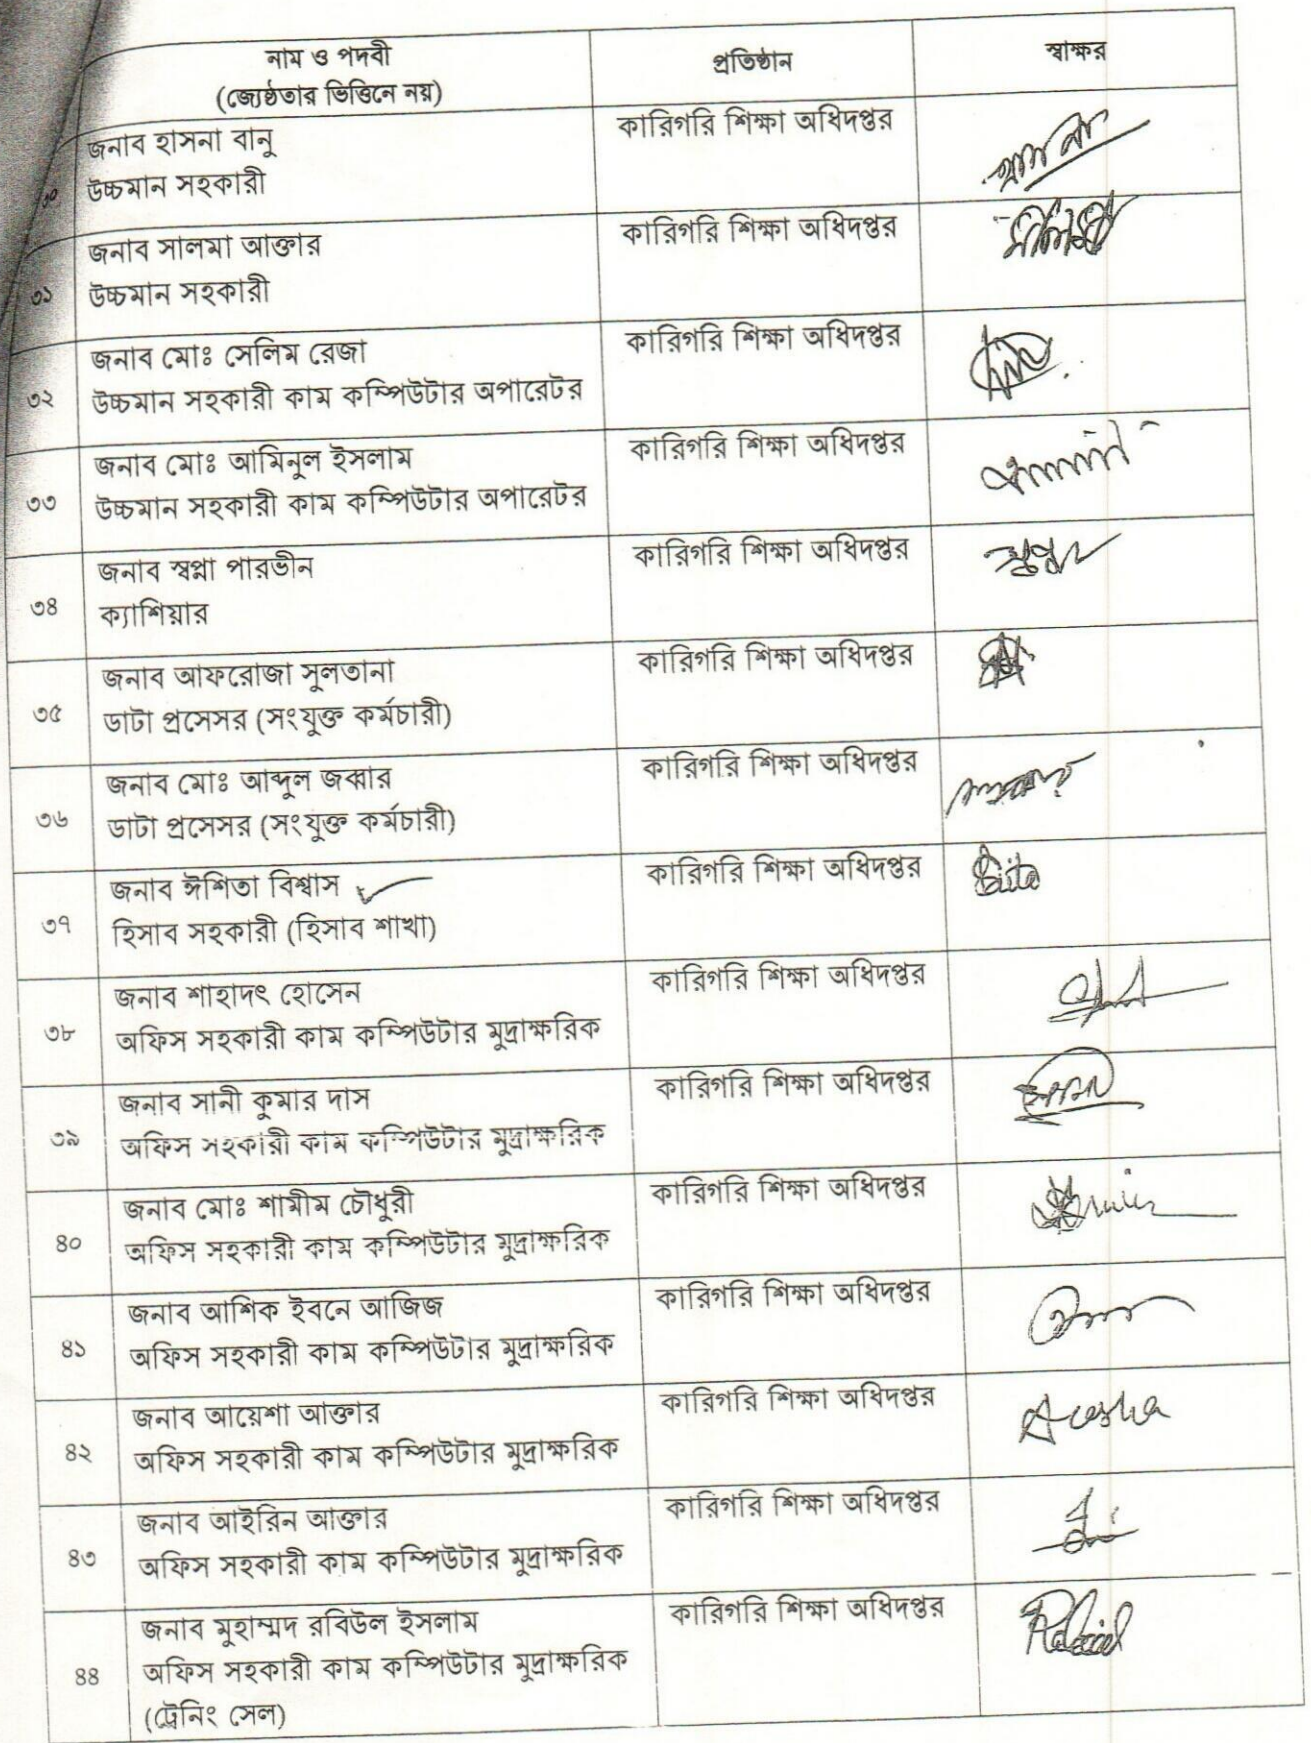 নাম ও পদবী
(জ্যেষ্ঠতার ভিত্তিনে নয়)
প্রতিষ্ঠান
স্বাক্ষর
৩০
জনাব হাসনা বানু
উচ্চমান সহকারী
কারিগরি শিক্ষা অধিদপ্তর
৩১
জনাব সালমা আক্তার
উচ্চমান সহকারী
কারিগরি শিক্ষা অধিদপ্তর
৩২
জনাব মোঃ সেলিম রেজা
উচ্চমান সহকারী কাম কম্পিউটার অপারেটর
কারিগরি শিক্ষা অধিদপ্তর
৩৩
জনাব মোঃ আমিনুল ইসলাম
উচ্চমান সহকারী কাম কম্পিউটার অপারেটর
কারিগরি শিক্ষা অধিদপ্তর
৩৪
জনাব স্বপ্না পারভীন
ক্যাশিয়ার
কারিগরি শিক্ষা অধিদপ্তর
৩৫
জনাব আফরোজা সুলতানা
ডাটা প্রসেসর (সংযুক্ত কর্মচারী)
কারিগরি শিক্ষা অধিদপ্তর
৩৬
জনাব মোঃ আব্দুল জব্বার
ডাটা প্রসেসর (সংযুক্ত কর্মচারী)
কারিগরি শিক্ষা অধিদপ্তর
৩৭
জনাব ঈশিতা বিশ্বাস
হিসাব সহকারী (হিসাব শাখা)
কারিগরি শিক্ষা অধিদপ্তর
৩৮
জনাব শাহাদৎ হোসেন
অফিস সহকারী কাম কম্পিউটার মুদ্রাক্ষরিক
কারিগরি শিক্ষা অধিদপ্তর
৩৯
জনাব সানী কুমার দাস
অফিস সহকারী কাম কম্পিউটার মুদ্রাক্ষরিক
কারিগরি শিক্ষা অধিদপ্তর
৪০
জনাব মোঃ শামীম চৌধুরী
অফিস সহকারী কাম কম্পিউটার মুদ্রাক্ষরিক
কারিগরি শিক্ষা অধিদপ্তর
৪১
জনাব আশিক ইবনে আজিজ
অফিস সহকারী কাম কম্পিউটার মুদ্রাক্ষরিক
কারিগরি শিক্ষা অধিদপ্তর
৪২
জনাব আয়েশা আক্তার
অফিস সহকারী কাম কম্পিউটার মুদ্রাক্ষরিক
কারিগরি শিক্ষা অধিদপ্তর
৪৩
জনাব আইরিন আক্তার
অফিস সহকারী কাম কম্পিউটার মুদ্রাক্ষরিক
কারিগরি শিক্ষা অধিদপ্তর
৪৪
জনাব মুহাম্মদ রবিউল ইসলাম
অফিস সহকারী কাম কম্পিউটার মুদ্রাক্ষরিক
(ট্রেনিং সেল)
কারিগরি শিক্ষা অধিদপ্তর